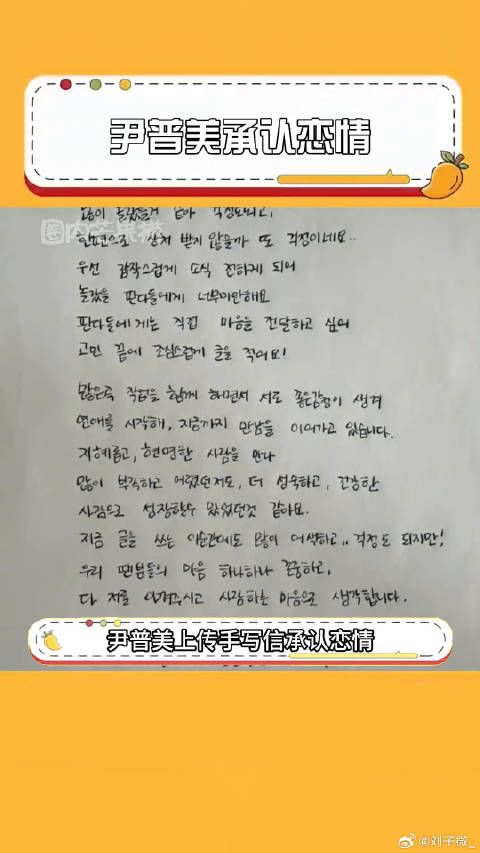 尹普美承认恋情
圈内芒果捞
많이 놀랐을거 같아 걱정도되고,
한편으로 상처 받지 않을까 또 걱정이네요..
우선 갑작스럽게 소식 전하게 되어
놀랐을 판다들에게 너무미안해요
판다들에게는 직접 마음을 전달하고 싶어
고민 끝에 조심스럽게 글을 적어요!
많은곡 작업을 함께 하면서 서로 좋은감정이 생겨
연애를 시작해, 지금까지 만남을 이어가고 있습니다.
지혜롭고, 현명한 사람을 만나
많이 부족하고 어렸던저도, 더 성숙하고, 건강한
사람으로 성장할수 있었던것 같아요.
지금 글을 쓰는 이순간에도 많이 어색하고.. 걱정도 되지만!
우리 팬분들의 마음 하나하나 존중하고,
다 저를 아껴주시고 사랑하는 마음으로 생각합니다.
尹普美上传手写信承认恋情
@刘子微_